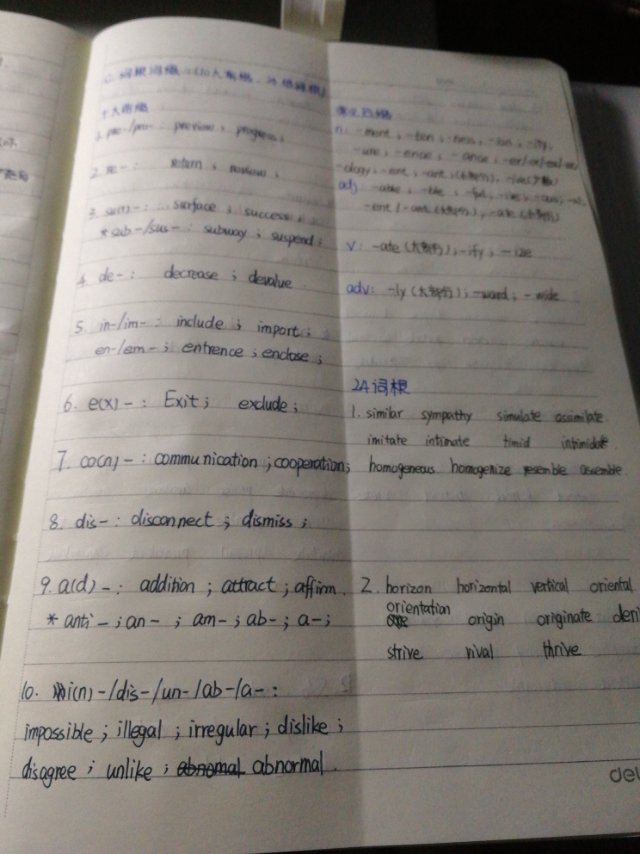 十大前缀
1. pre-/pro-: preview ; progress ;
2. re-: return ; review ;
3. su(r)-: surface ; success ;
*sub-/sus-: subway ; suspend ;
4. de-: decrease ; devalue
5. in-/im-: include ; import ;
en-/em-; entrence ; enclose ;
6. e(x)-: Exit ; exclude ;
7. co(n)-: communication ; cooperation ;
8. dis-: disconnect ; dismiss ;
9. a(d)-: addition ; attract ; affirm.
*anti-; an-; am-; ab-; a-;
10. i(n)-/dis-/un-/ab-/a-:
impossible ; illegal ; irregular ; dislike ;
disagree ; unlike ; abnomal abnormal.
n: -ment ; -tion ; -ness ; -ion ; -ity,
-ure ; -ence ; -ance ; -er/or/
-ology, -ent, -ant
adj. -able ; -ble ; -ful ; -ive ;
-ent / -ant (大部分), -ate
v: -ate (大部分); -ify ; -ize
adv: -ly (大部分); -ward ; -wide
24词根
1. similar sympathy simulate assimilate
imitate intimate timid intimidate
homogeneous homogenize resemble assemble
2. horizon horizontal vertical oriental
orientation origin originate deri
strive rival thrive
del